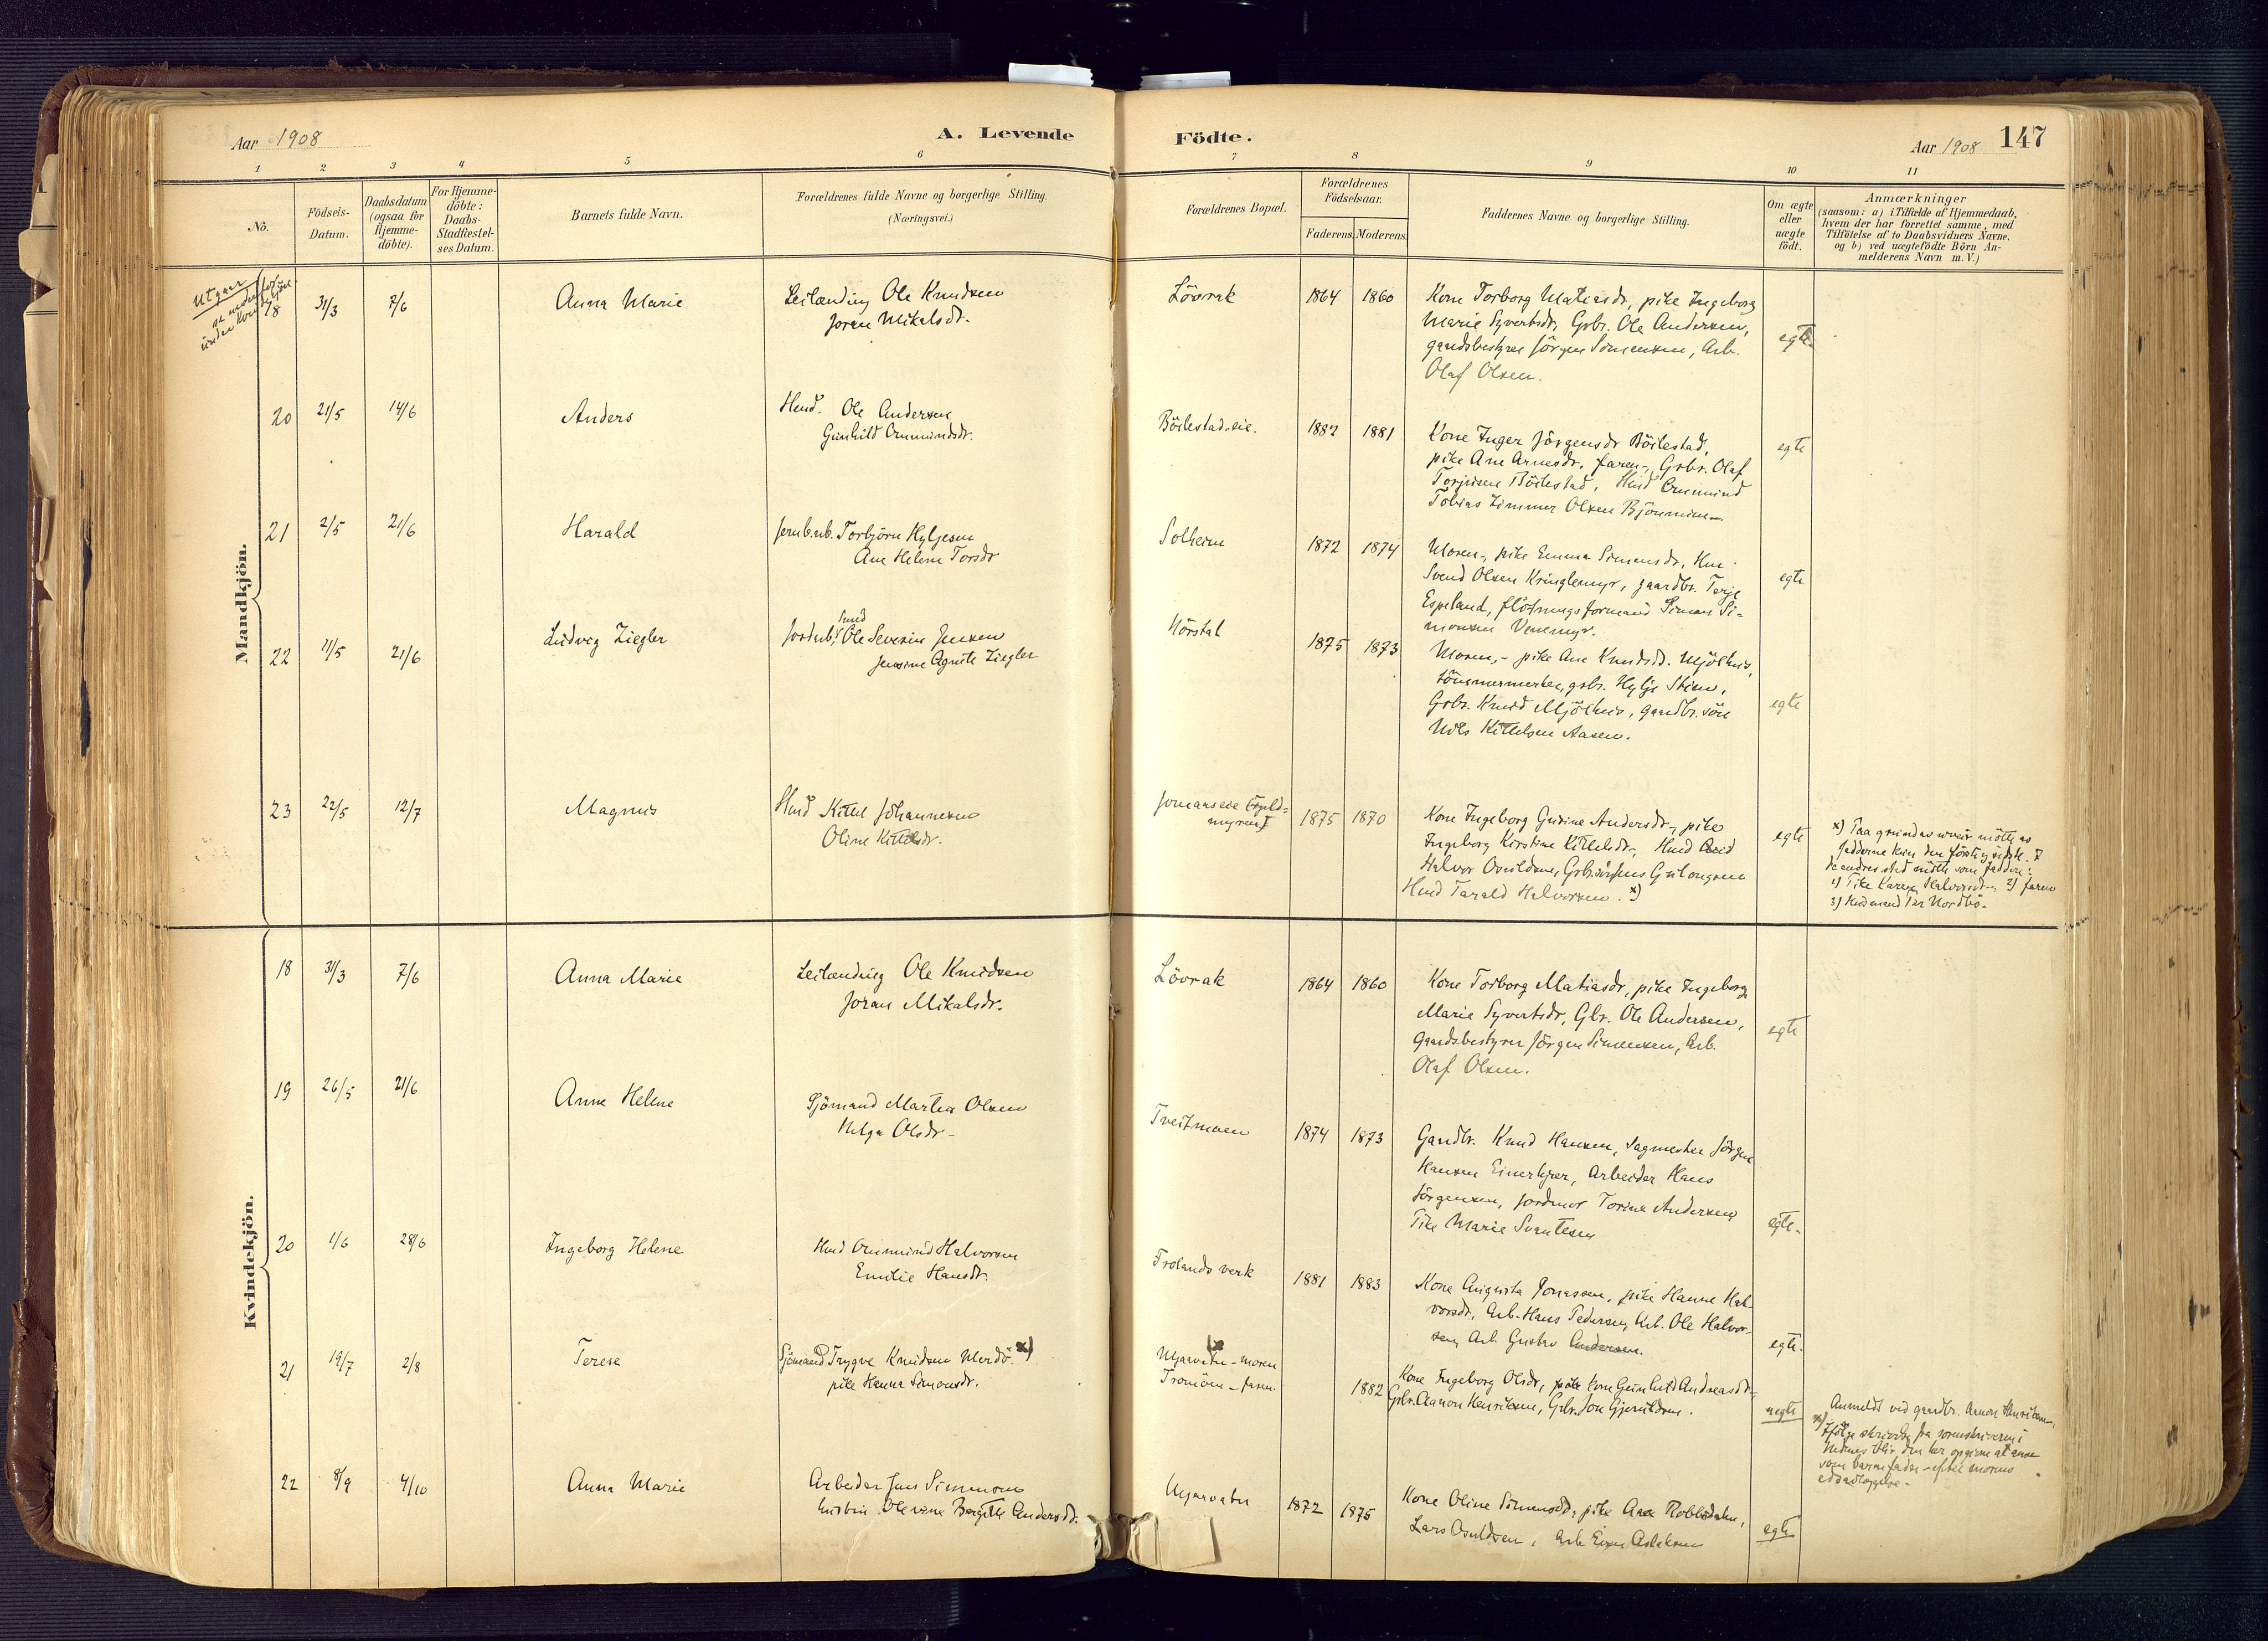 Aar 1908
A. Levende
Födte.
Aar 1908
147
1 2 3 4 5 6 7 8 9 10 11
No.
Födsels-
Datum.
Daabsdatum
(ogsaa for
Hjemme-
döbte).
For Hjemme-
döbte:
Daabs-
Stadfæstel-
ses Datum.
Barnets fulde Navn.
Forældrenes fulde Navne og borgerlige Stilling.
(Næringsvei.)
Forældrenes Bopæl.
Forældrenes
Födselsaar.
Faderens.
Moderens.
Faddernes Navne og borgerlige Stilling.
Om ægte
eller
uægte
födt.
Anmærkninger
(saasom: a) i Tilfælde af Hjemmedaab,
hvem der har forrettet samme, med
Tilföielse af to Daabsvidners Navne.
og b) ved uægtefödte Börn An-
melderens Navn m. V.)
Mandkjön.
Utgaar
se nedenfor
under kvindekjön
18 31/3 7/6 Anna Marie
Leilænding Ole Knudsen
Joran Mikalsdr.
Lövrak 1864 1860
Kone Torborg Matiasdr, pike Ingeborg
Marie Syvertsdr, Grbr. Ole Andersen,
gaardsbestyrer Jörgen Simensen, Arb.
Olaf Olsen.
egte
20 21/5 14/6 Anders
Husd. Ole Andersen
Gunhild Aanundsdr.
Böilestad-eie. 1882 1881
Kone Inger Jörgensdr Böilestad,
pike Ane Arnesdr, faren-, Grbr. Olaf
Torjusen Böilestad, Husd
Tobias Zimmer Olsen
egte
21 2/5 21/6 Harald
Jernb.arb. Torbjörn Hyljesen
Ane Helene Torsdr
Solheim 1872 1874
Moren-, pike Emma Simensdr, Hm
Svend Olsen Kringlemyr, gaardbr. Terje
Espeland, flötningsformand Simon Si-
monsen Venemyr.
egte
22 11/5 21/6 Ludvig Ziegler
Ole Severin Jensen
Jensine Agnete Ziegler
Hörstal 1875 1873
Moren,- pike Ane Knudsd. Mjölhus,
tömmermerker, grbr. Hylje Stien,
Grbr. Knud Mjölhus, gaardbr. sön
Nils Kittelsen Aasen.
egte
23 22/5 12/7 Magnus
Husd Kittel Johannesen
Oline Kittelsdr.
Jomaaseie
1875 1870
Kone Ingeborg Gurine Andersdr-, pike
Ingeborg Kirstine Kittelsdr-, Husd
Halvor Osuldsen, Grbr.
Husd Tarald Halvorsen. x)
egte
x) Paa grund av uveir mötte av
fadderne kun den förste og sidste. I
de andres sted mötte som faddere:
1) Pike Karen Halvorsdr- 2) faren
3) Husmand Per Nordbö-
Kvindekjön.
18 31/3 7/6 Anna Marie
Leilænding Ole Knudsen
Joran Mikalsdr.
Lövrak 1864 1860
Kone Torborg Matiasdr, pike Ingeborg
Marie Syvertsdr, Gbr. Ole Andersen,
Gaardsbestyrer Jörgen Simensen, Arb.
Olaf Olsen.
egte
19 26/5 21/6 Anne Helene
Sjömand Martin Olsen
Helga Olsdr-
Tveitmoen 1874 1873
Gaardbr. Knud Hansen, Sagmester Jörgen
Hansen Einerkjær, Arbeider Hans
Jörgensen, Jordmor Torine Andersen,
Pike Marie Svantesen
egte.
20 1/6 28/6 Ingeborg Helene
Husd Aanund Halvorsen
Emilie Hansdr.
Frolands verk 1881 1883
Kone Augusta Jonassen, pike Hanne Hal-
vorsdr, Arb. Hans Pedersen, Arb. Ole Halvor-
sen, Arb. Gustav Andersen.
egte.
21 19/7 2/8 Terese
Sjömand Trygve Knudsen Merdö. x)
pike Hanna Simonsdr.
Mjaavatn - moren
Tromöen - faren
1882
Kone Ingeborg Olsdr, kone Gunhild Andreasdr,
Grbr. Aanon Henriksen, Grbr. Jon Gjeruldsen.
uegte
Anmeldt ved gaardbr. Aanon Henriksen.
x) Ifölge skrivelse fra sorenskriveren i
Nedenes blir den her opgivne at anse
som barnefader - efter morens
edsavlæggelse.
22 8/9 4/10 Anna Marie
Arbeider Jens Simonsen
hustru Olevine Bergitte Andersdr.
Mjaavatn 1872 1875
Kone Oline Simensdr, pike Aase Robbsdalen,
Lars Osuldsen, Arb Einar Aslaksen
egte